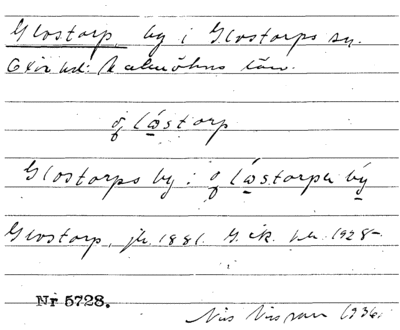 Glostorp, by i Glostorps sn.
Oxie hd: Malmöhus län.
glåstorp
Glostorps by: glåstorpa by
Glostorp, jb. 1881. G. ek. kb. 1928-
Nr 5728.
Nils Nilsson 1936.